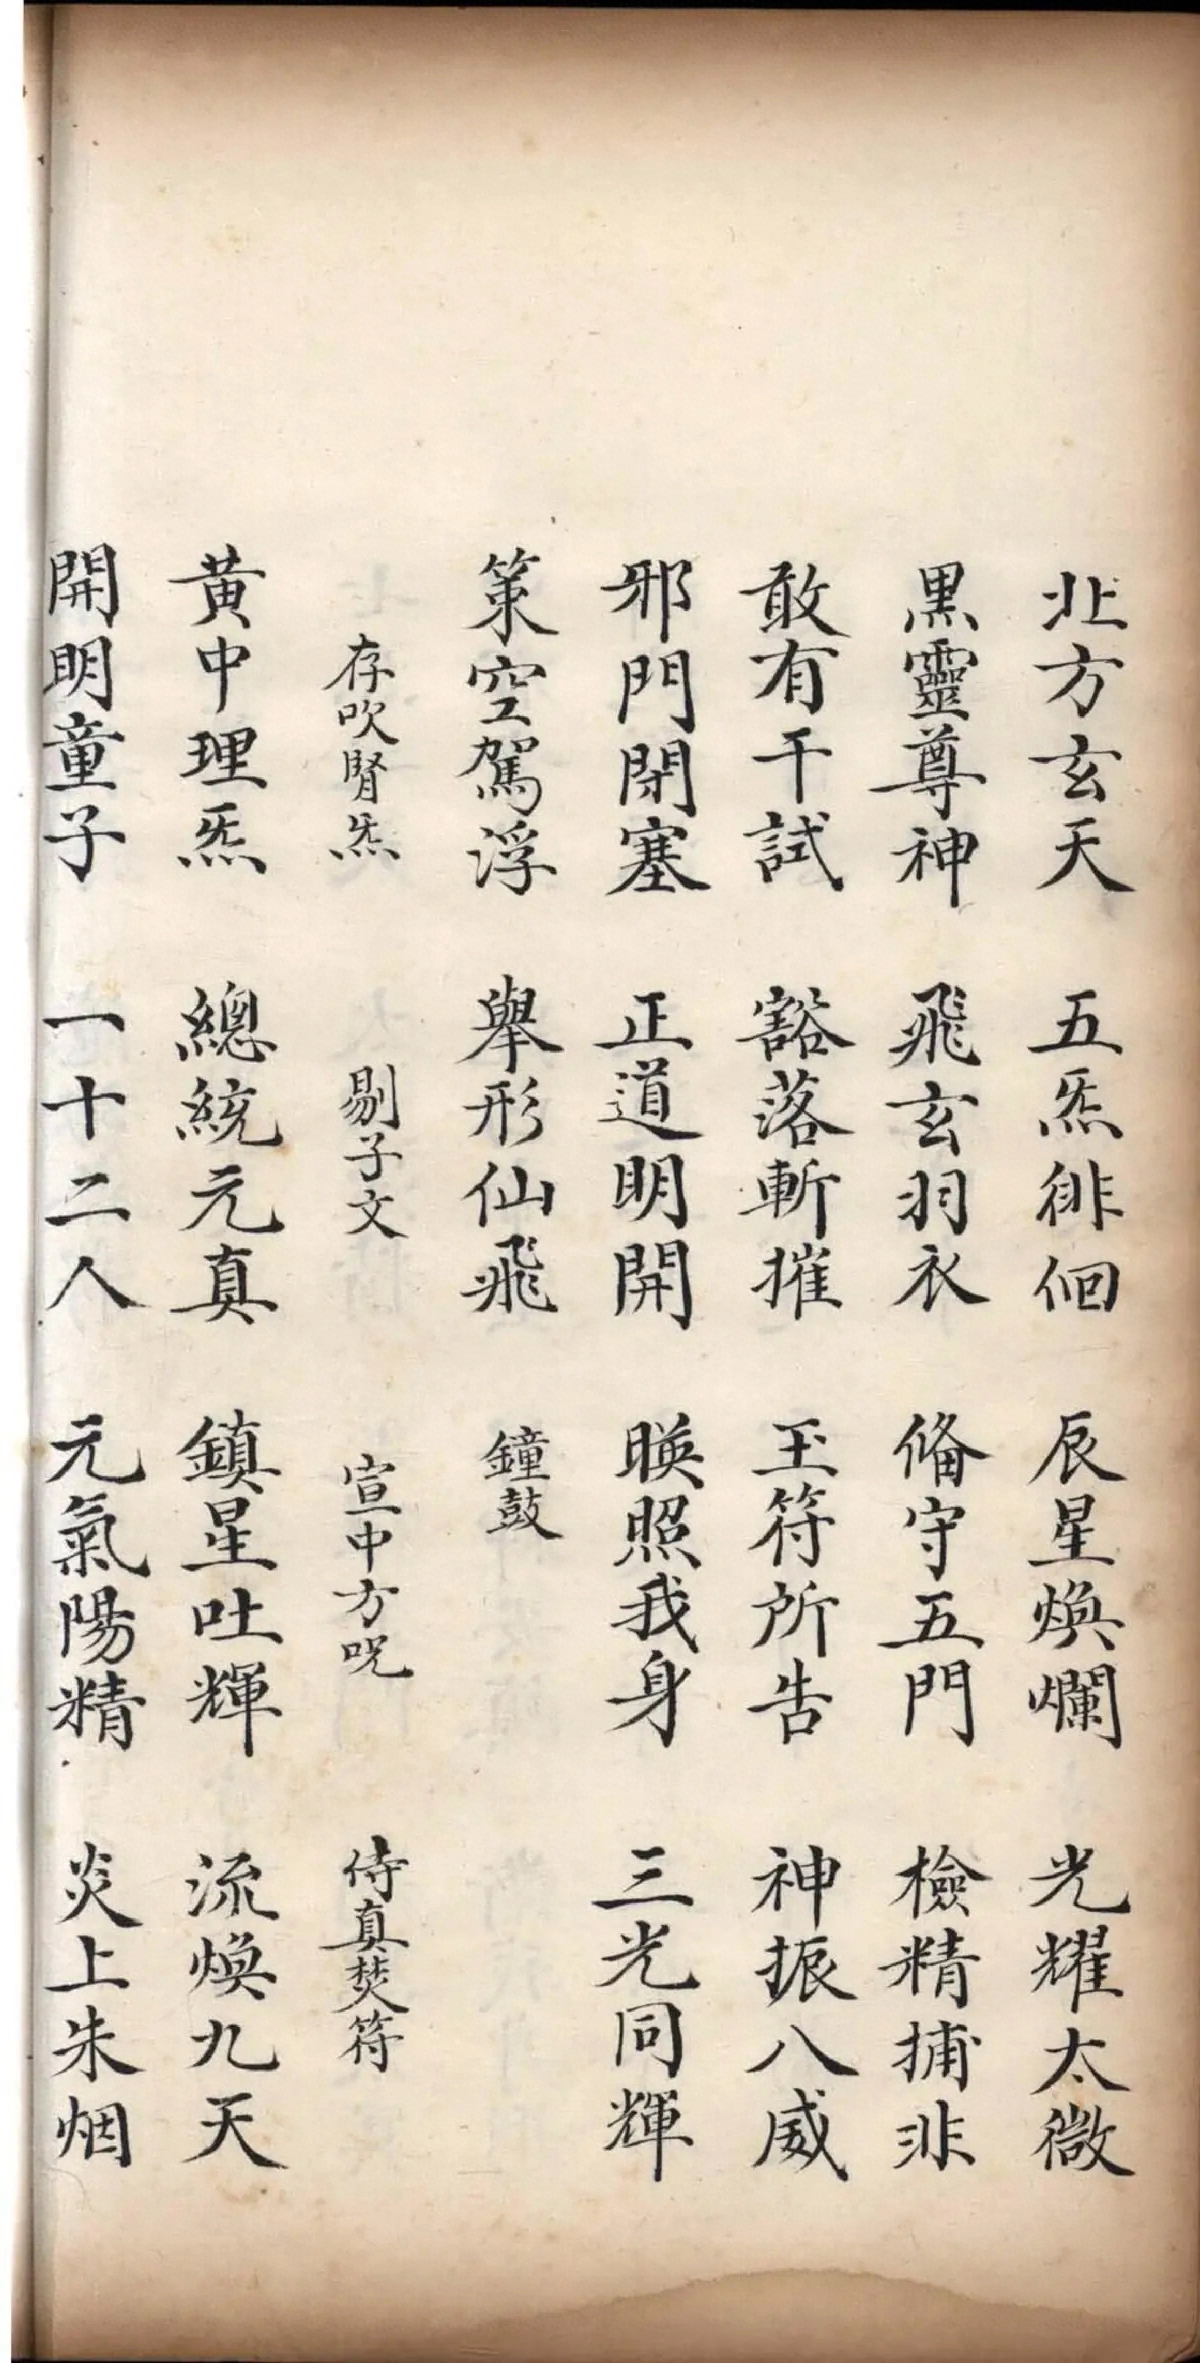 北方玄天　五炁徘徊　辰星煥爛　光耀太微
黑靈尊神　飛玄羽衣　俻守五門　檢精捕非
敢有干試　豁落斬摧　玉符所告　神振八威
邪門閉塞　正道明開　暎照我身　三光同輝
策空駕浮　舉形仙飛　鐘鼓
存吹腎炁　剔子文　宣中方呪　侍真焚符
黄中理炁　總統元真　鎮星吐輝　流煥九天
開明童子　一十二人　元氣陽精　炎上朱烟